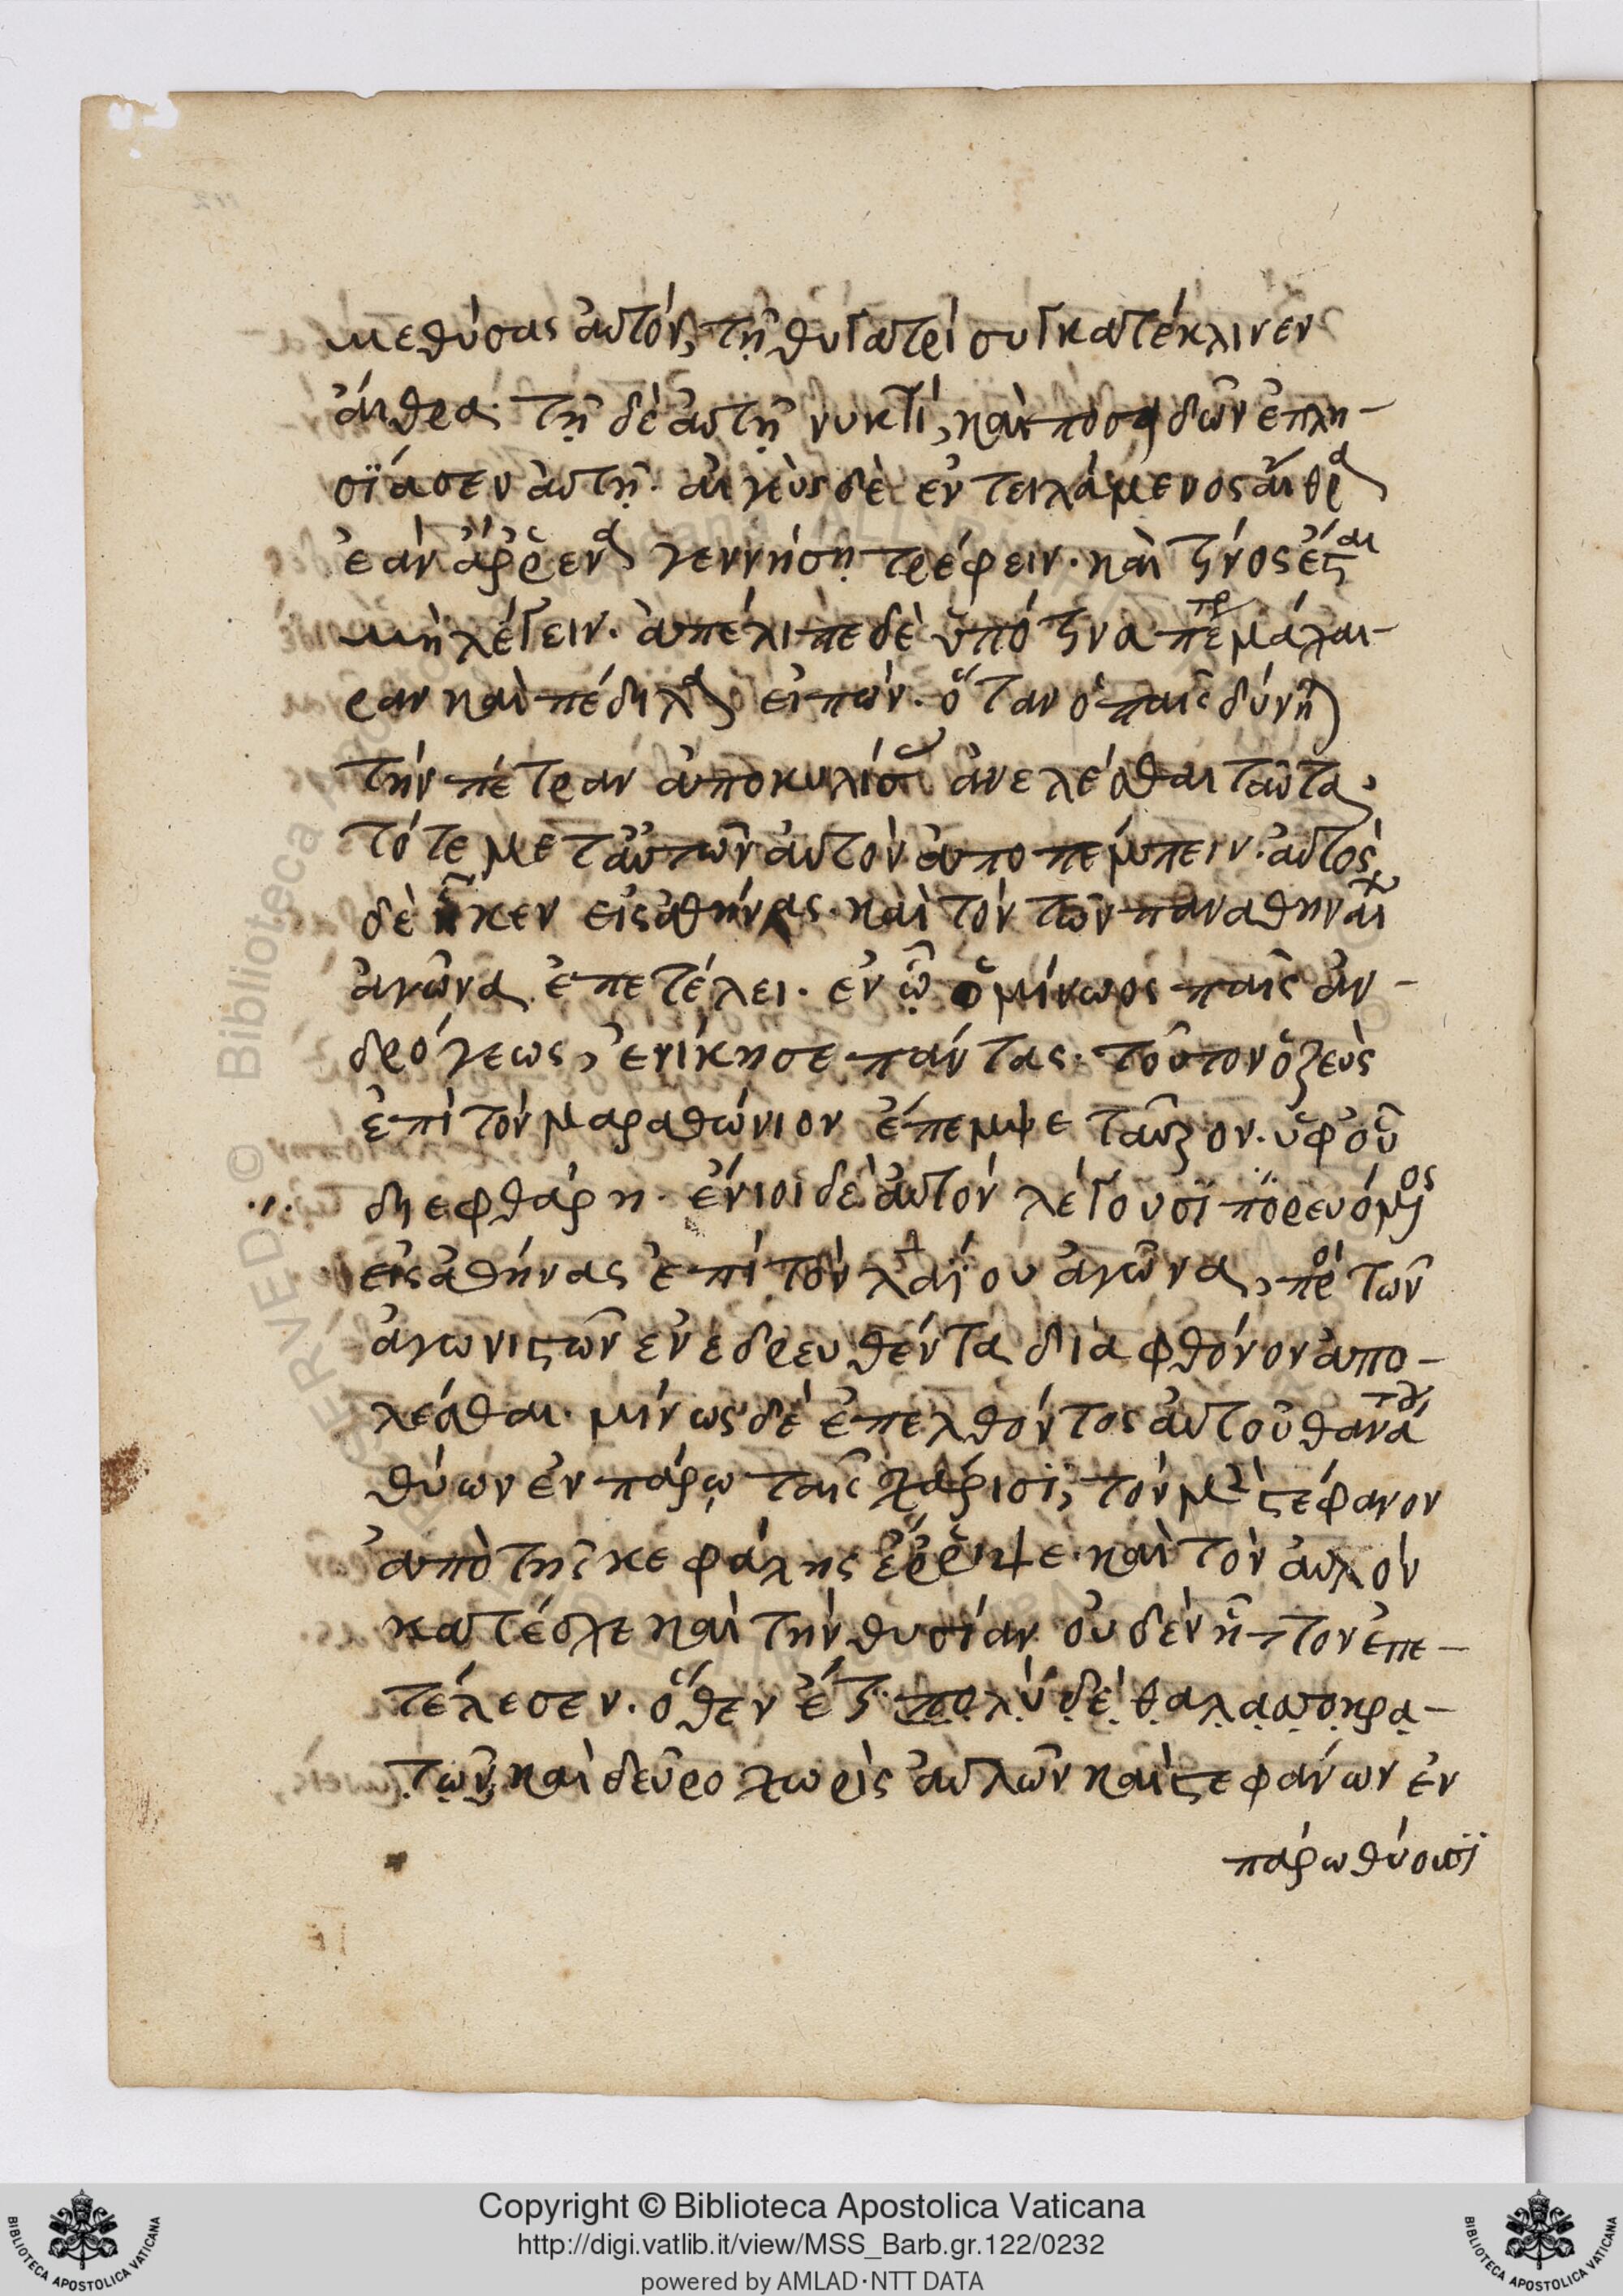 μεθύσας αὐτόν, τῇ θυγατρὶ συγκατέκλινεν
αἴθρα. τῇ δὲ αὐτῇ νυκτί, καὶ ποσειδῶν ἐπλη-
σίασεν αὐτῇ. αἰγεὺς δὲ ἐντειλάμενος αἴθρα
ἐὰν ἄῤῥενα γεννήσῃ τρέφειν. καὶ τίνος ἔσται
μὴ λέγειν. ἀπέλιπε δὲ ὑπό τινα πέτρ μάχαι-
ραν καὶ πέδιλα εἰπών. ὅταν ὁ παῖς δύνηται
τὴν πέτραν ἀποκυλίσας ἀνελέσθαι ταῦτα,
τότε μετ' αὐτῶν αὐτὸν ἀποπέμπειν. αὐτὸς
δὲ ἧκεν εἰς ἀθήνας. καὶ τὸν τῶν παναθηναίων
ἀγῶνα ἐπετέλει. ἐν ᾧ ὁ μίνωος παῖς ἀν-
δρόγεως, ἐνίκησε πάντας. τοῦτον αἰγεὺς
ἐπὶ τὸν μαραθώνιον ἔπεμψε ταῦρον. ὑφ' οὗ
διεφθάρη. ἔνιοι δὲ αὐτὸν λέγουσϊ πορευόμενος
εἰς ἀθήνας ἐπὶ τὸν λαΐου ἀγῶνα, πρὸ τῶν
ἀγωνιστῶν ἐνεδρευθέντα διὰ φθόνον ἀπο-
λέσθαι. μίνως δὲ ἐπελθόντος αὐτοῦ θανάτου,
θύων ἐν πάρῳ ταῖς χάρισϊ, τὸν μὲν στέφανον
ἀπὸ τῆς κεφάλης ἔῤῥιψε. καὶ τὸν αὐλὸν
κατέσχε καὶ τὴν θυσίαν οὐδὲν ἧττον ἐπε-
τέλεσεν. ὅθεν ἔτι πολὺ δὲ θαλασσοκρα-
τῶν, καὶ δεῦρο χωρὶς αὐλῶν καὶ στεφάνων ἐν
πάρω θύουσϊ
Copyright © Biblioteca Apostolica Vaticana
http://digi.vatlib.it/view/MSS_Barb.gr.122/0232
powered by AMLAD·NTT DATA